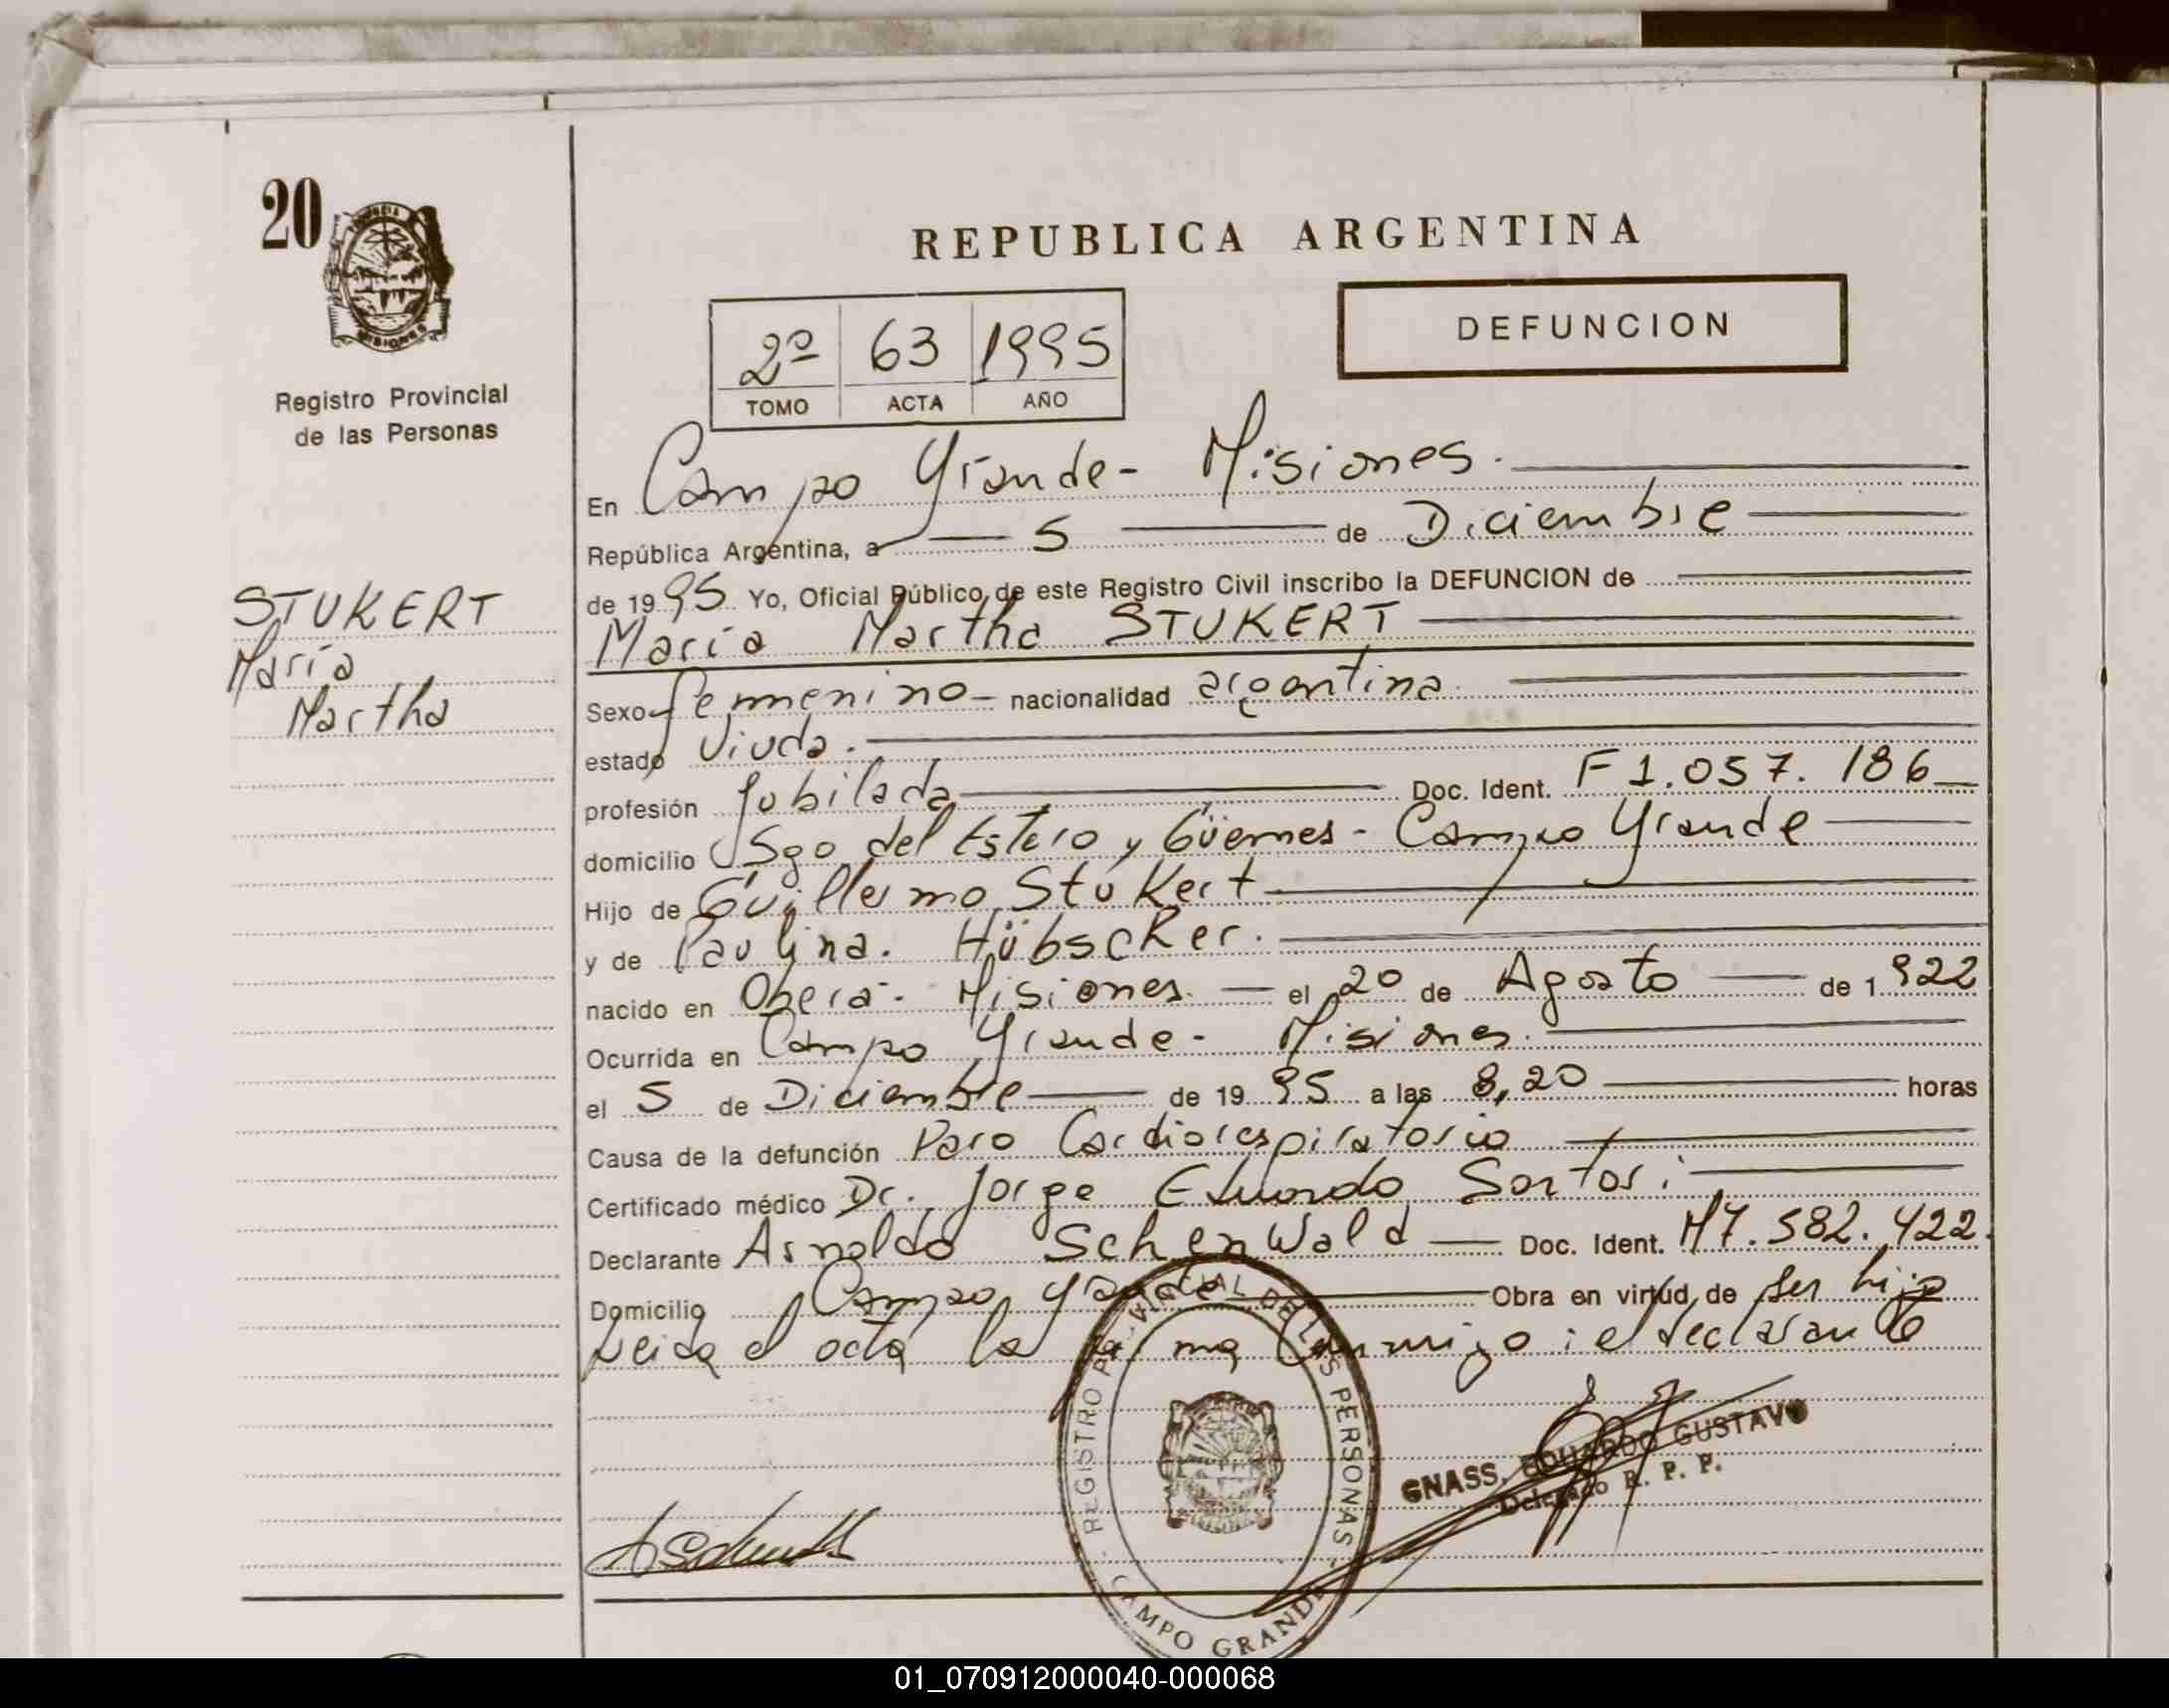 20
Registro Provincial
de las Personas
STUKERT
María
Martha
REPUBLICA ARGENTINA
DEFUNCION
2º 63 1995
TOMO ACTA AÑO
En Campo Grande - Misiones.
República Argentina, a 5 de Diciembre
de 1995 Yo, Oficial Público de este Registro Civil inscribo la DEFUNCION de
María Martha STUKERT
Sexo femenino nacionalidad argentina
estado Viuda.
profesión Jubilada Doc. Ident. F 1.057.186
domicilio Sgo del Estero y Güemes - Campo Grande
Hijo de Guillermo Stukert
y de Paulina. Hübscker.
nacido en Oberá - Misiones el 20 de Agosto de 1922
Ocurrida en Campo Grande - Misiones.
el 5 de Diciembre de 1995 a las 8,20 horas
Causa de la defunción Paro Cardiorespiratorio
Certificado médico Dr. Jorge Eduardo Sartori
Declarante Arnoldo Schenwald Doc. Ident. M7.582.422.
Domicilio Campo Grande Obra en virtud de ser hijo
Leida el acta la firma conmigo: el declarante
REGISTRO PROVINCIAL DE LAS PERSONAS - CAMPO GRANDE
GNASS, EDUARDO GUSTAVO
Delegado R. P. P.
01_070912000040-000068